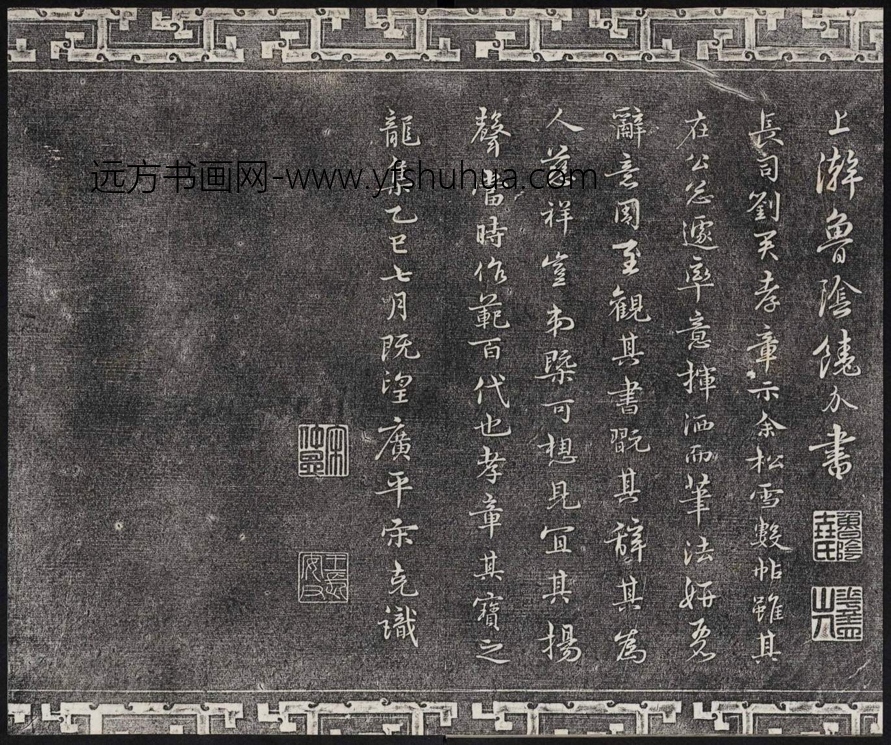 上澣魯陰饒介書
長司劉君孝章示余松雪數帖雖其
在公怱遽率意揮洒而筆法妍
辭意周至觀其書翫其辭其為
人慈祥豈弟槩可想見宜其揚
聲當時作範百代也孝章其寶之
龍集乙巳七月既望廣平宋克識
远方书画网-www.yfshuhua.com